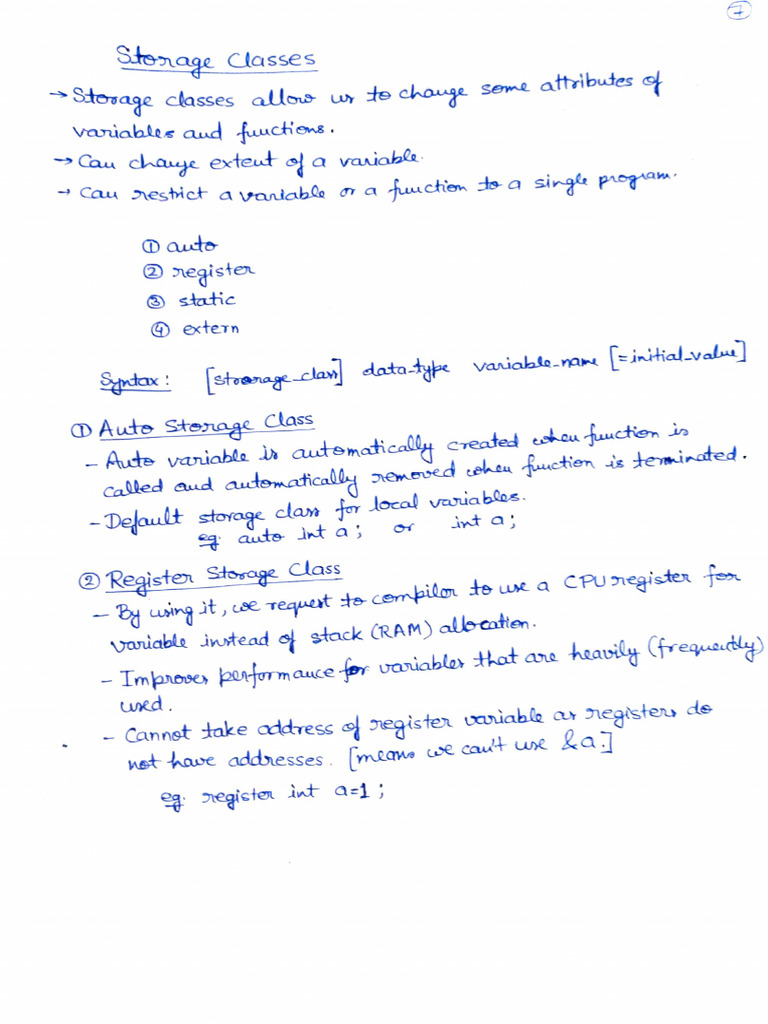 7
Storage Classes
→ Storage classes allow us to change some attributes of
variables and functions.
→ Can change extent of a variable.
→ Can restrict a variable or a function to a single program.
① auto
② register
③ static
④ extern
Syntax: [storage_class] data-type variable-name [=initial_value]
① Auto Storage Class
- Auto variable is automatically created when function is
called and automatically removed when function is terminated.
- Default storage class for local variables.
eg. auto int a; or int a;
② Register Storage Class
- By using it, we request to compiler to use a CPU register for
variable instead of stack (RAM) allocation.
- Improves performance for variables that are heavily (frequently)
used.
- Cannot take address of register variable as registers do
not have addresses. [means we can't use &a.]
eg. register int a=1;